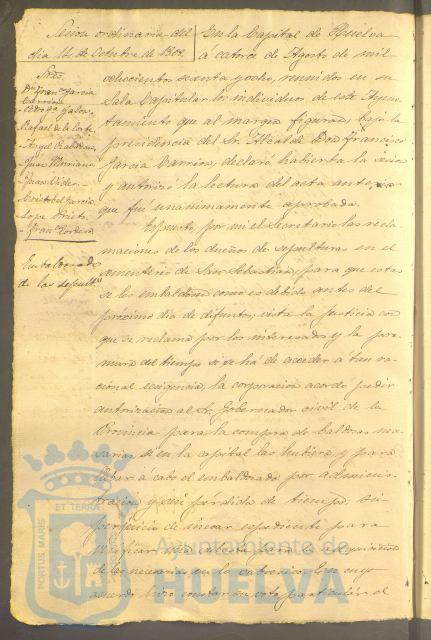 Sesion ordinaria del
dia 14 de Octubre de 1868
Sres.
Dn. Franco. Garcia
Carrion
Rafael de la Corte
Angel Rabadan
Juan
Juan
Cristobal Garcia
Lope Prieto
Franco.
Embaldosado
de las sepults.
En la Capital de Huelva
á catorce de Agosto de mil
ochocientos sesenta y ocho, reunidos en su
Sala Capitular los individuos de este Ayun-
tamiento que al margen figuran, bajo la
presidencia del Sr. Alcalde Don Francisco
Garcia Carrion, declaró habierta la sesion
y autorizó la lectura del acta anterior
que fué unanimemente aprobada.
Espuesto por mi el Secretario las recla-
maciones de los dueños de sepulturas en el
cementerio de San Sebastian, para que estas
se les embaldose como es debido antes del
proximo dia de difuntos, vista la justicia con
que se reclama por los interesados y la pre-
mura del tiempo si se há de acceder á tan ra-
cional exigencia, la corporacion acordó pedir
autorizacion al Sr. Gobernador civil de la
Provincia para la compra de baldosas
si en la capital las hubiera y para
llebar á cabo el embaldosado por adminis-
tracion y sin pérdida de tiempo, sin
perjuicio de incoar espediente para
justificar
de las necesarias en
acuerdo hizo constar su voto particular el
PORTUS MARIS ET TERRAE
Ayuntamiento de
HUELVA